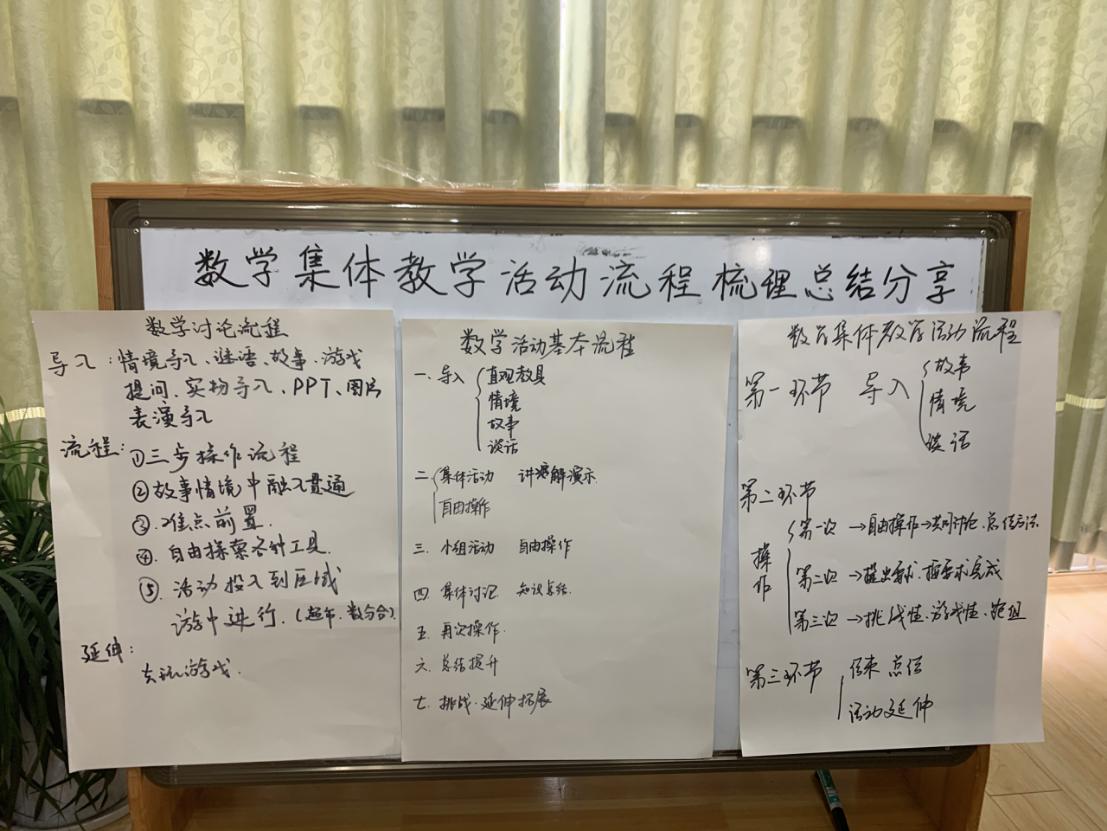 数学集体教学活动流程梳理总结分享
数学讨论流程
导入：情境导入、谜语、故事、游戏
提问、实物导入、PPT、图片
表演导入
流程：①三步操作流程
②故事情境中融入贯通
③.难点前置.
④.自由探索各种工具.
⑤.活动投入到区域
游中进行.(超市.数分合)
延伸：
游戏.
数学活动基本流程
一.导入 直观教具
情境
故事
谈话
二 集体活动 讲解演示.
自由操作
三.小组活动 自由操作
四.集体讨论 知识总结.
五.再次操作.
六.总结提升
七.挑战.延伸拓展
数学集体教学活动流程
第一环节 导入 故事
情境
谈话
第二环节
操作
第一次→自由操作→共同讨论.总结方法.
第二次→提出要求.按要求完成
第三次→挑战性.游戏性.
第三环节 结束 总结
活动延伸